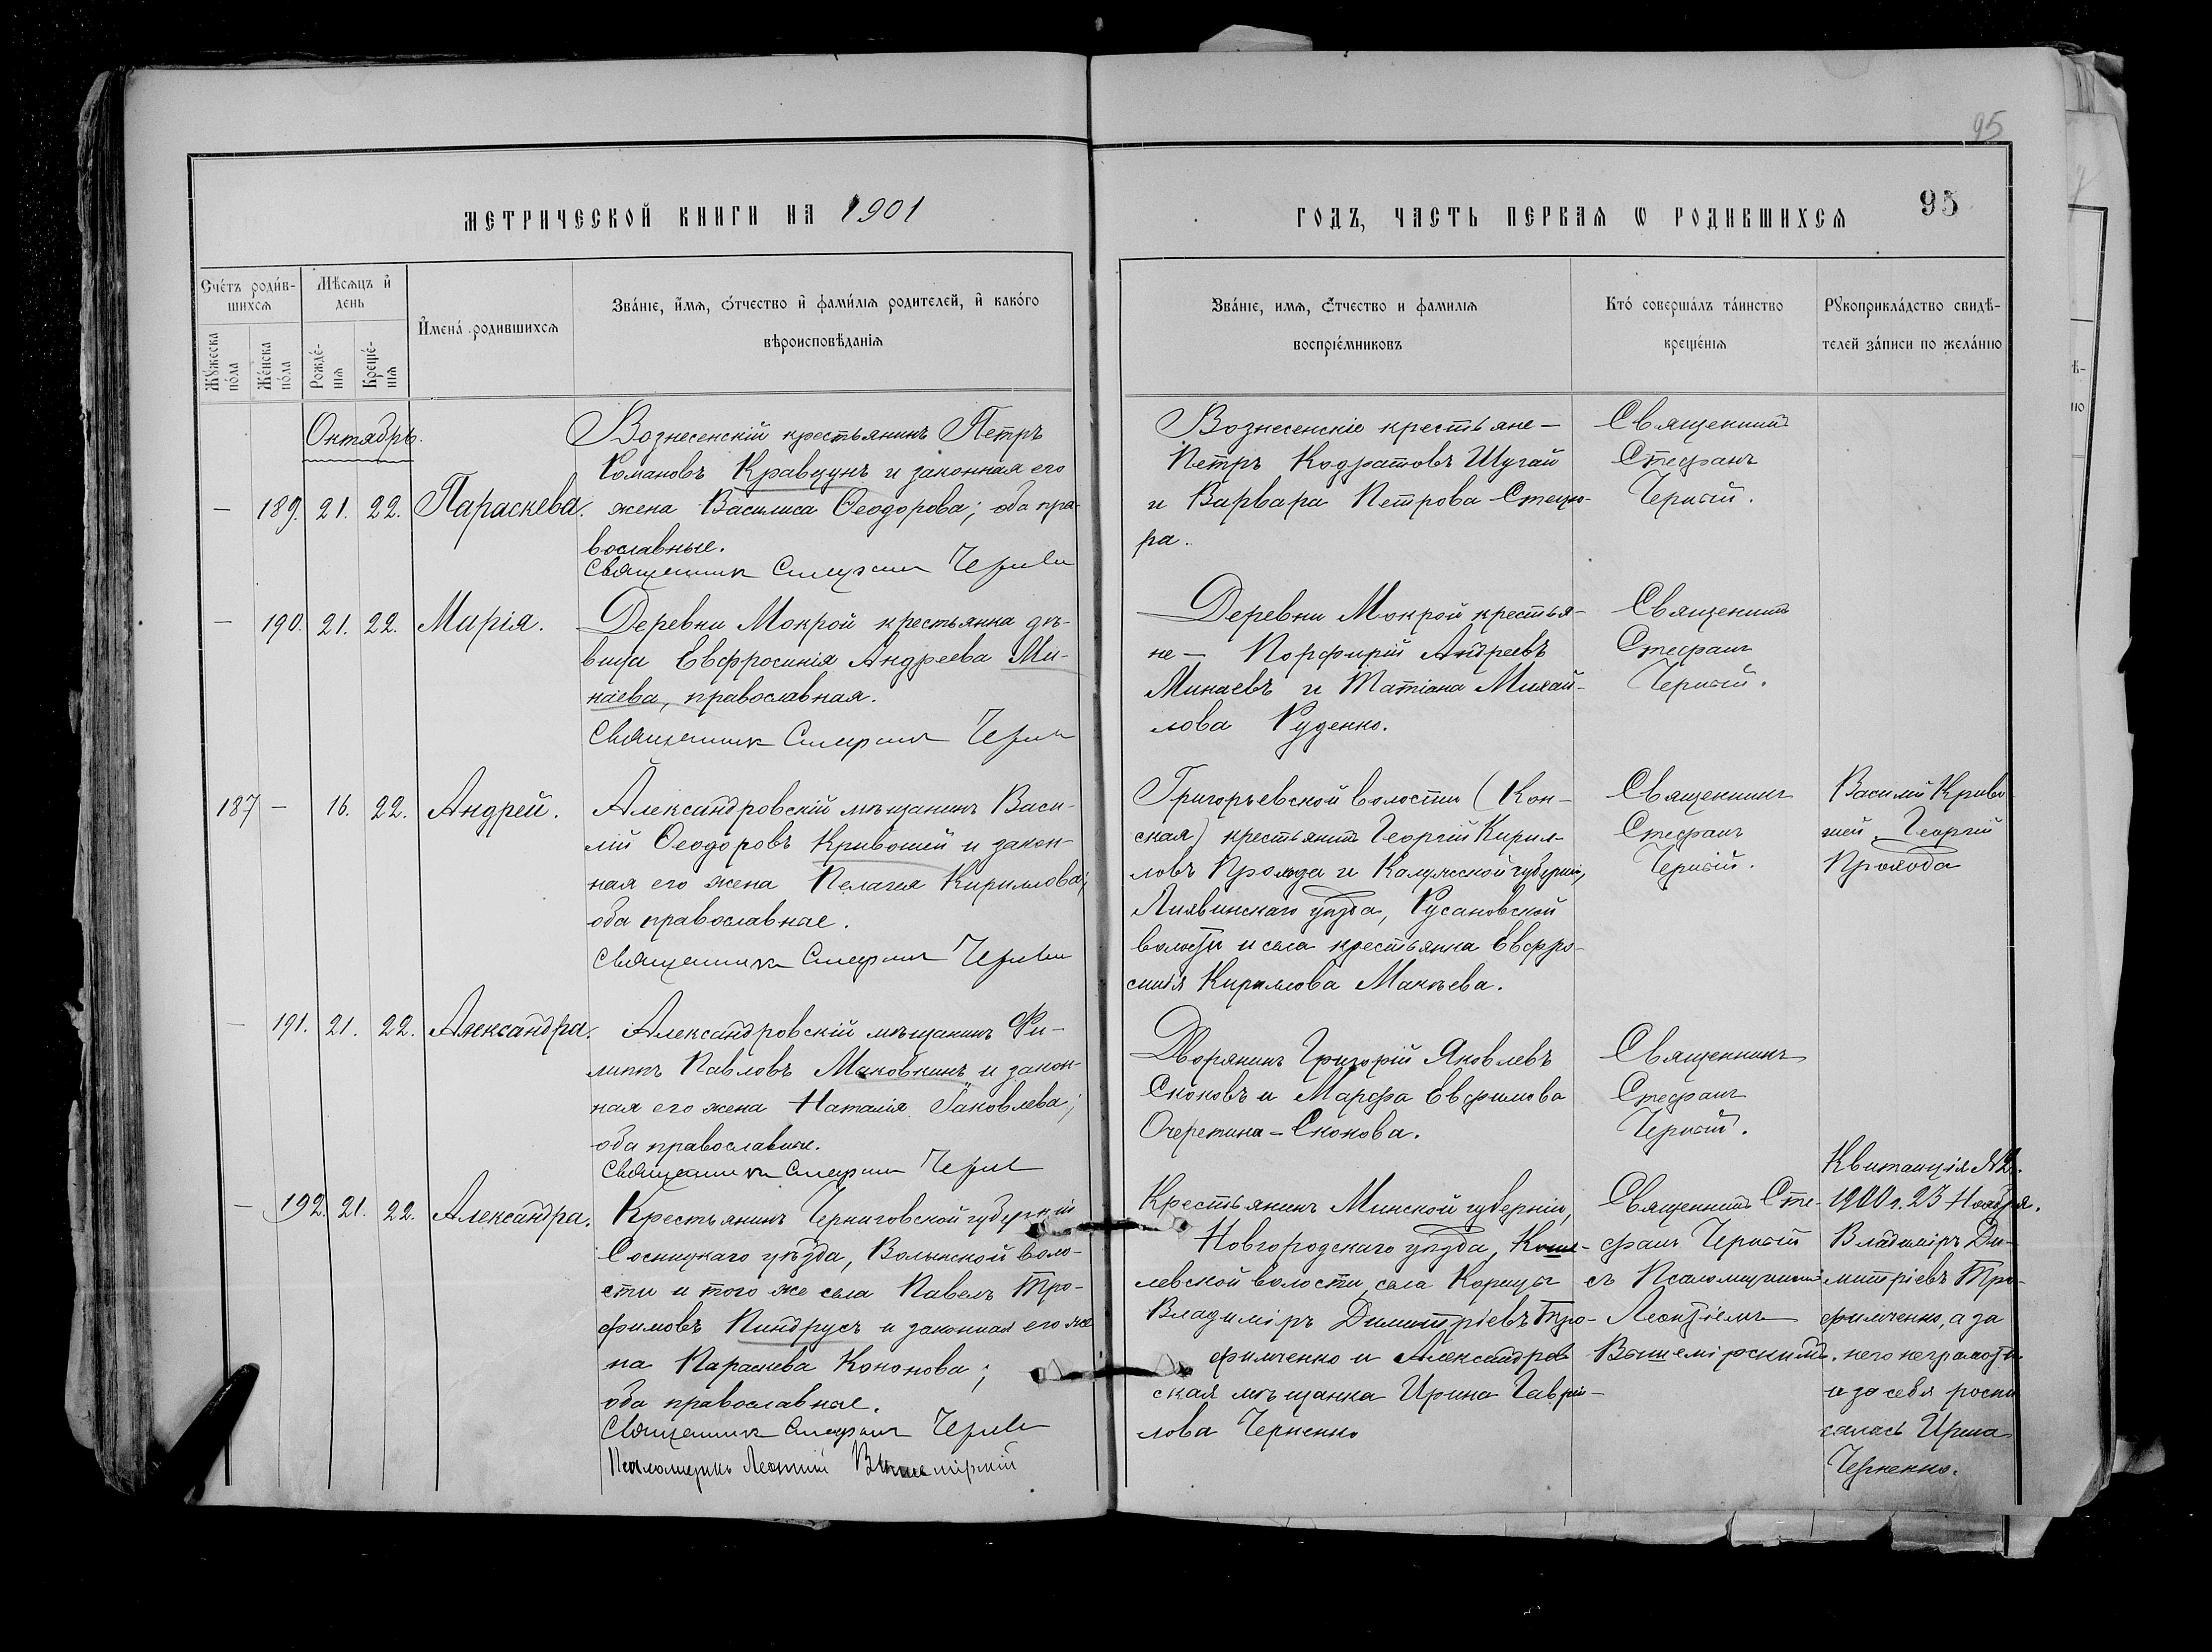 95
МЕТРИЧЕСКОЙ КНИГИ НА 1901
ГОДЪ, ЧАСТЬ ПЕРВАЯ Ѡ РОДИВШИХСЯ
95
Счетъ родив-
шихся
Мужеска пола
Женска пола
Мѣсяцъ и
день
Рожде-
нія
Креще-
нія
Имена родившихся
Званіе, имя, отчество и фамилія родителей, и какого
вѣроисповѣданія
Званіе, имя, отчество и фамилія
воспріемниковъ
Кто совершалъ таинство
крещенія
Рукоприкладство свидѣ-
телей записи по желанію
Октябрь.
— 189. 21. 22. Параскева.
Вознесенскій крестьянинъ Петръ
Романовъ Кравцунъ и законная его
жена Василиса Ѳеодорова; оба пра-
вославные.
Священник Стефан
Вознесенскіе крестьяне —
Петръ Кодратовъ Шугай
и Варвара Петрова Стецю-
ра.
Священникъ
Стефанъ
Черный.
— 190. 21. 22. Марія.
Деревни Мокрой крестьянка дѣ-
вица Евфросинія Андреева Ми-
наева, православная.
Священник Стефан
Деревни Мокрой крестья-
не — Порфирій Андреевъ
Минаевъ и Татіана Михай-
лова Руденко.
Священникъ
Стефанъ
Черный.
187 — 16. 22. Андрей.
Александровскій мѣщанинъ Васи-
лій Ѳеодоровъ Кривошей и закон-
ная его жена Пелагея Кириллова;
оба православные.
Священник Стефан
Григорьевской волости (Кон-
ская) крестьянинъ Георгій Кирил-
ловъ Прохода и Калужской губерніи,
Лихвинскаго уѣзда, Русановской
волости и села крестьянка Евфро-
синія Кириллова Макѣева.
Священникъ
Стефанъ
Черный.
Василій Криво
шей Георгій
Прохода
— 191. 21. 22. Александра.
Александровскій мѣщанинъ Фи-
липпъ Павловъ Маковкинъ и закон-
ная его жена Наталія Іаковлева;
оба православные.
Священник Стефан
Дворянинъ Григорій Яковлевъ
Скоковъ и Марфа Евфимова
Очеретина-Скокова.
Священникъ
Стефанъ
Черный.
— 192. 21. 22. Александра.
Крестьянинъ Черниговской губерніи
Сосницкаго уѣзда, Волынской воло-
сти и того же села Павелъ Тро-
фимовъ Пиндрусъ и законная его же
на Параскева Кононова;
оба православные.
Священник Стефан
Псаломщикъ Леонтій
Крестьянинъ Минской губерніи,
Новгородскаго уѣзда, Коше-
левской волости, села Корицы
Владиміръ Димитріевъ Тро-
фимченко и Александров
ская мѣщанка Ирина Гаврі-
лова Черненко
Священникъ Сте-
фанъ Черный
съ Псаломщикомъ
Леонтіемъ
Вышемірскимъ.
Квитанція №
1900 г. 23 Ноября.
Владиміръ Ди-
митріевъ Тро-
фимченко, а за
него неграмотн
и за себя роспи
салась Ирина
Черненко.